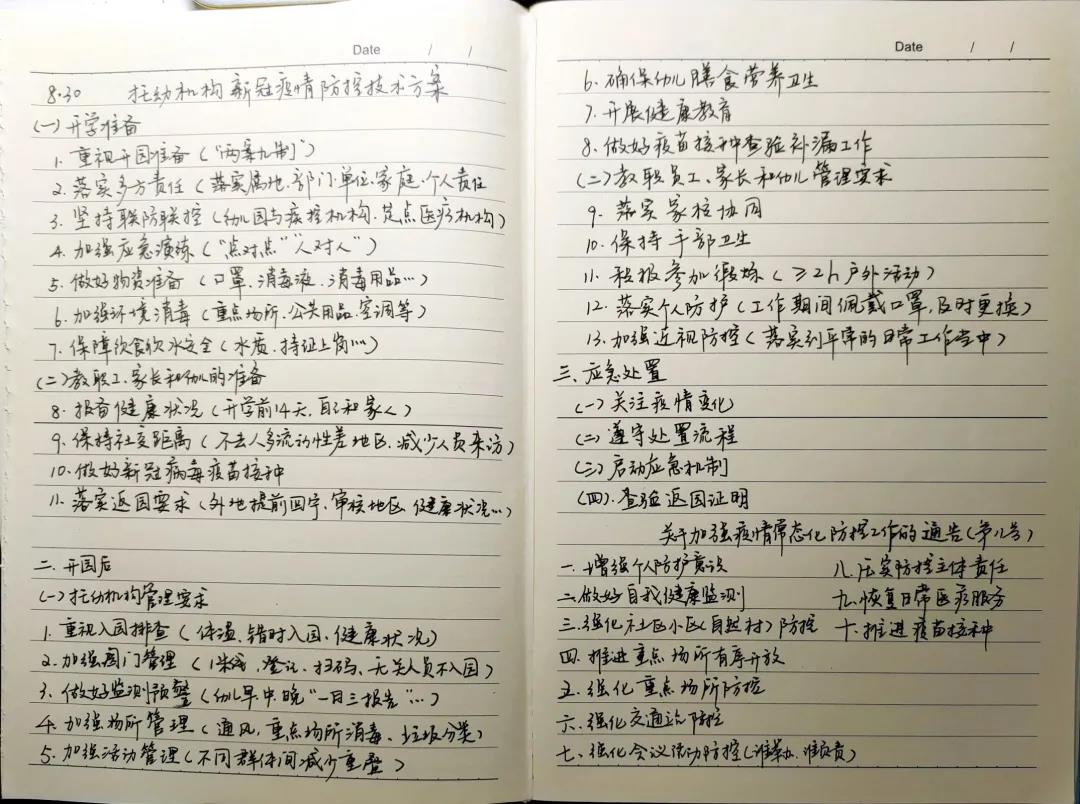 Date / /
8.30 托幼机构新冠疫情防控技术方案
(一)开学准备
1. 重视开园准备(“两案九制”)
2. 落实多方责任(落实属地、部门、单位、家庭、个人责任
3. 坚持联防联控(幼儿园与疾控机构、定点医疗机构)
4. 加强应急演练(“点对点”“人对人”)
5. 做好物资准备(口罩、消毒液、消毒用品…)
6. 加强环境消毒(重点场所、公共用品、空调等)
7. 保障饮食饮水安全(水质、持证上岗…)
(二)教职工、家长和幼儿的准备
8. 报备健康状况(开学前14天,自己和家人)
9. 保持社交距离(不去人多流动性差地区、减少人员来访)
10. 做好新冠病毒疫苗接种
11. 落实返园要求(外地提前回宁、审核地区、健康状况…)
二. 开园后
(一)托幼机构管理要求
1. 重视入园排查(体温、错时入园、健康状况)
2. 加强园门管理(1米线、登记、扫码、无关人员不入园)
3. 做好监测预警(幼儿早中晚“一日三报告”…)
4. 加强场所管理(通风,重点场所消毒、垃圾分类)
5. 加强活动管理(不同群体间减少重叠)
Date / /
6. 确保幼儿膳食营养卫生
7. 开展健康教育
8. 做好疫苗接种查验补漏工作
(二)教职员工、家长和幼儿管理要求
9. 落实家校协同
10. 保持手部卫生
11. 积极参加锻炼(≥2h户外活动)
12. 落实个人防护(工作期间佩戴口罩,及时更换)
13. 加强近视防控(落实到平常的日常工作当中)
三. 应急处置
(一)关注疫情变化
(二)遵守处置流程
(三)启动应急机制
(四). 查验返园证明
关于加强疫情常态化防控工作的通告(第八号)
一. 增强个人防护意识 八. 压实防控主体责任
二. 做好自我健康监测 九. 恢复日常医疗服务
三. 强化社区小区(自然村)防控 十. 推进疫苗接种
四. 推进重点场所有序开放
五. 强化重点场所防控
六. 强化交通站防控
七. 强化会议流动防控(谁举办、谁负责)